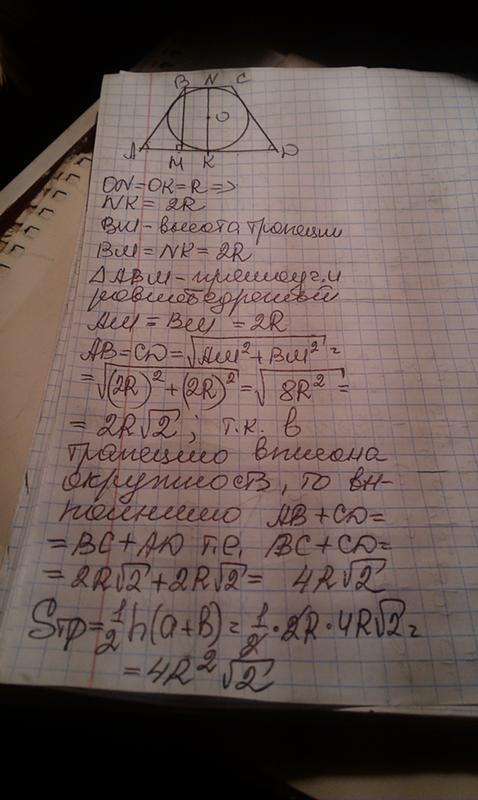 B N C
O
A M K D
ON=OK=R =>
NK = 2R
BM - высота трапеции
BM = NK = 2R
△ABM - прямоуг. и
равнобедренный
AM = BM = 2R
AB = CD = √(AM² + BM²) =
= √((2R)² + (2R)²) = √(8R²) =
= 2R√2; т.к. в
трапецию вписана
окружность, то
AB + CD =
= BC + AD т.е. BC + CD =
= 2R√2 + 2R√2 = 4R√2
Sтр = 1/2 h(a+B) = 1/2 · 2R · 4R√2 =
= 4R² √2